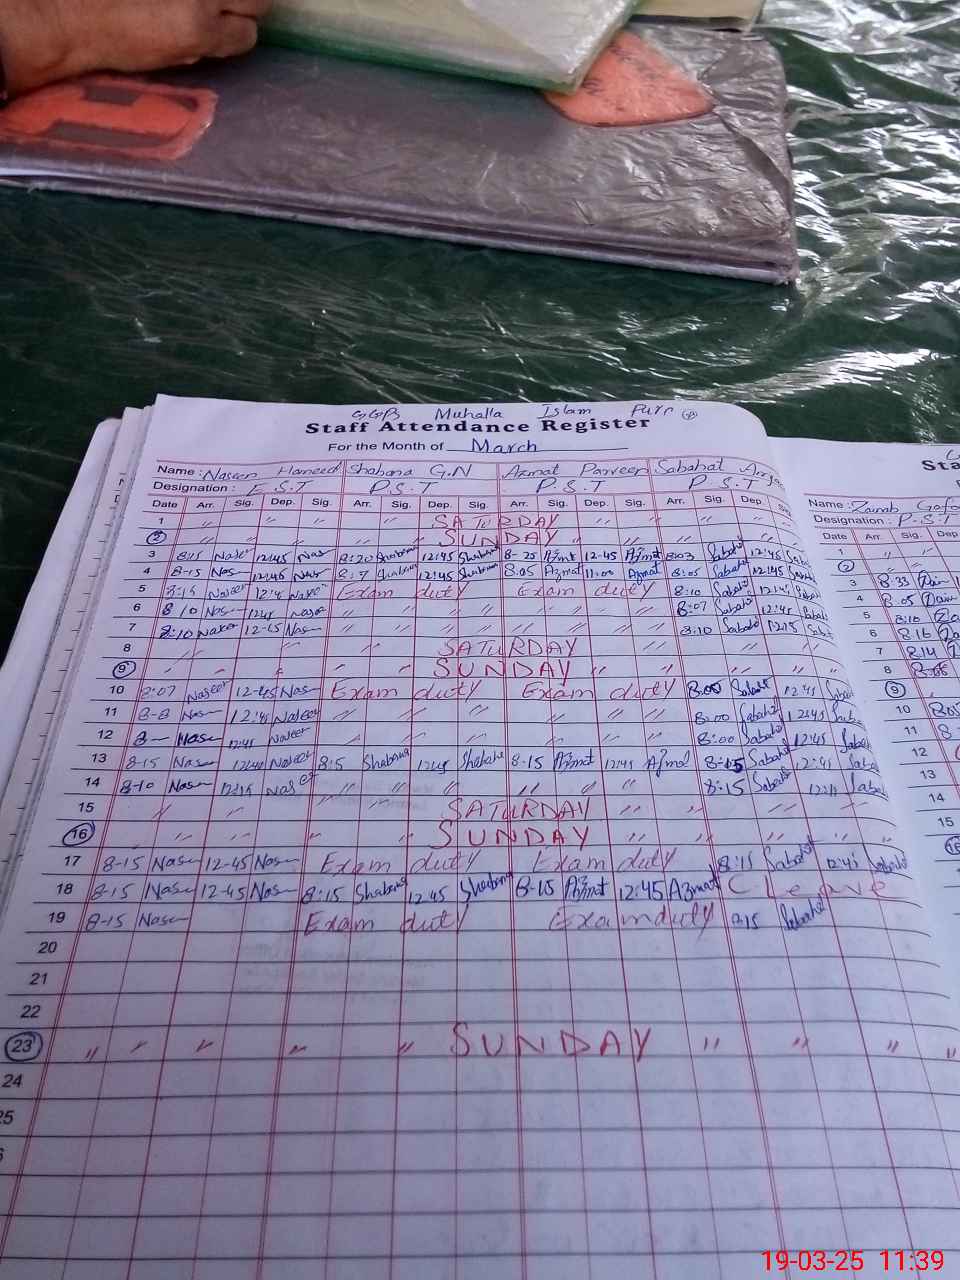 GGPS Muhalla Islam Pura
Staff Attendance Register
For the Month of March
Name: Naseem Hameed Shabana G.N Azmat Parveen Sabahat
Designation: E.S.T P.S.T P.S.T P.S.T
Date Arr. Sig. Dep. Sig. Arr. Sig. Dep. Sig. Arr. Sig. Dep. Sig. Arr. Sig. Dep. Sig.
1 " " " " " SATURDAY " " " "
2 SUNDAY
3 8:15 Naseem 12:45 Nas 8:20 Shabana 12:45 Shabana 8-25 Azmat 12-45 Azmat 8:03 Sabahat 12:45 Saba
4 8-15 Nas 12:45 Nas 8:7 Shabana 12:45 Shabana 8:05 Azmat 11:00 Azmat 8:05 Sabahat 12:45 Sabah
5 8:15 Naseem Naseem Exam duty Exam duty 8:10 Sabahat 12:45 Sabah
6 8:10 Nas 12:45 Nase " " " " " " " " 8:07 Sabahat 12:45 Saba
7 8:10 Naseem 12-45 Nas " " " " " " " " 8:10 Sabahat Saba
8 SATURDAY " " " "
9 SUNDAY " " " "
10 8:07 Naseem 12-45 Nas Exam duty Exam duty 8:00 Sabahat 12:45 Sabah
11 8-8 Nas 12:45 Naseem " " " " " " " " 8:00 Sabahat 12:45 Saba
12 8- Nase 12:45 Naseem " " " " " " " " 8:00 Sabahat 12:45 Sabah
13 8-15 Nase Naseem 8:5 Shabana 12:45 Shabana 8-15 Azmat 12:45 Azmat 8:15 Sabahat 12:45 Sabah
14 8-10 Nase Naseem " " " " " " " " 8:15 Sabahat Sabah
15 " " " " " SATURDAY " " " "
16 " " " " SUNDAY " " " "
17 8-15 Nase 12-45 Nase Exam duty Exam duty 8:15 Sabahat 12:45 Sabahat
18 8-15 Nase 12-45 Nase 8:15 Shabana 12:45 Shabana 8-15 Azmat 12:45 Azmat C Leave
19 8-15 Nase Exam duty Exam duty 8:15 Sabahat
20
21
22
23 " " " " " SUNDAY " " " "
24
25
Sta
Name: Zainab
Designation: P.S.T
Date Arr. Sig. Dep
1 " "
2
3 8:33
4 8:05
5 8:10
6 8:16
7 8:14
8
9
10
11
12
13
14
15
16
19-03-25 11:39